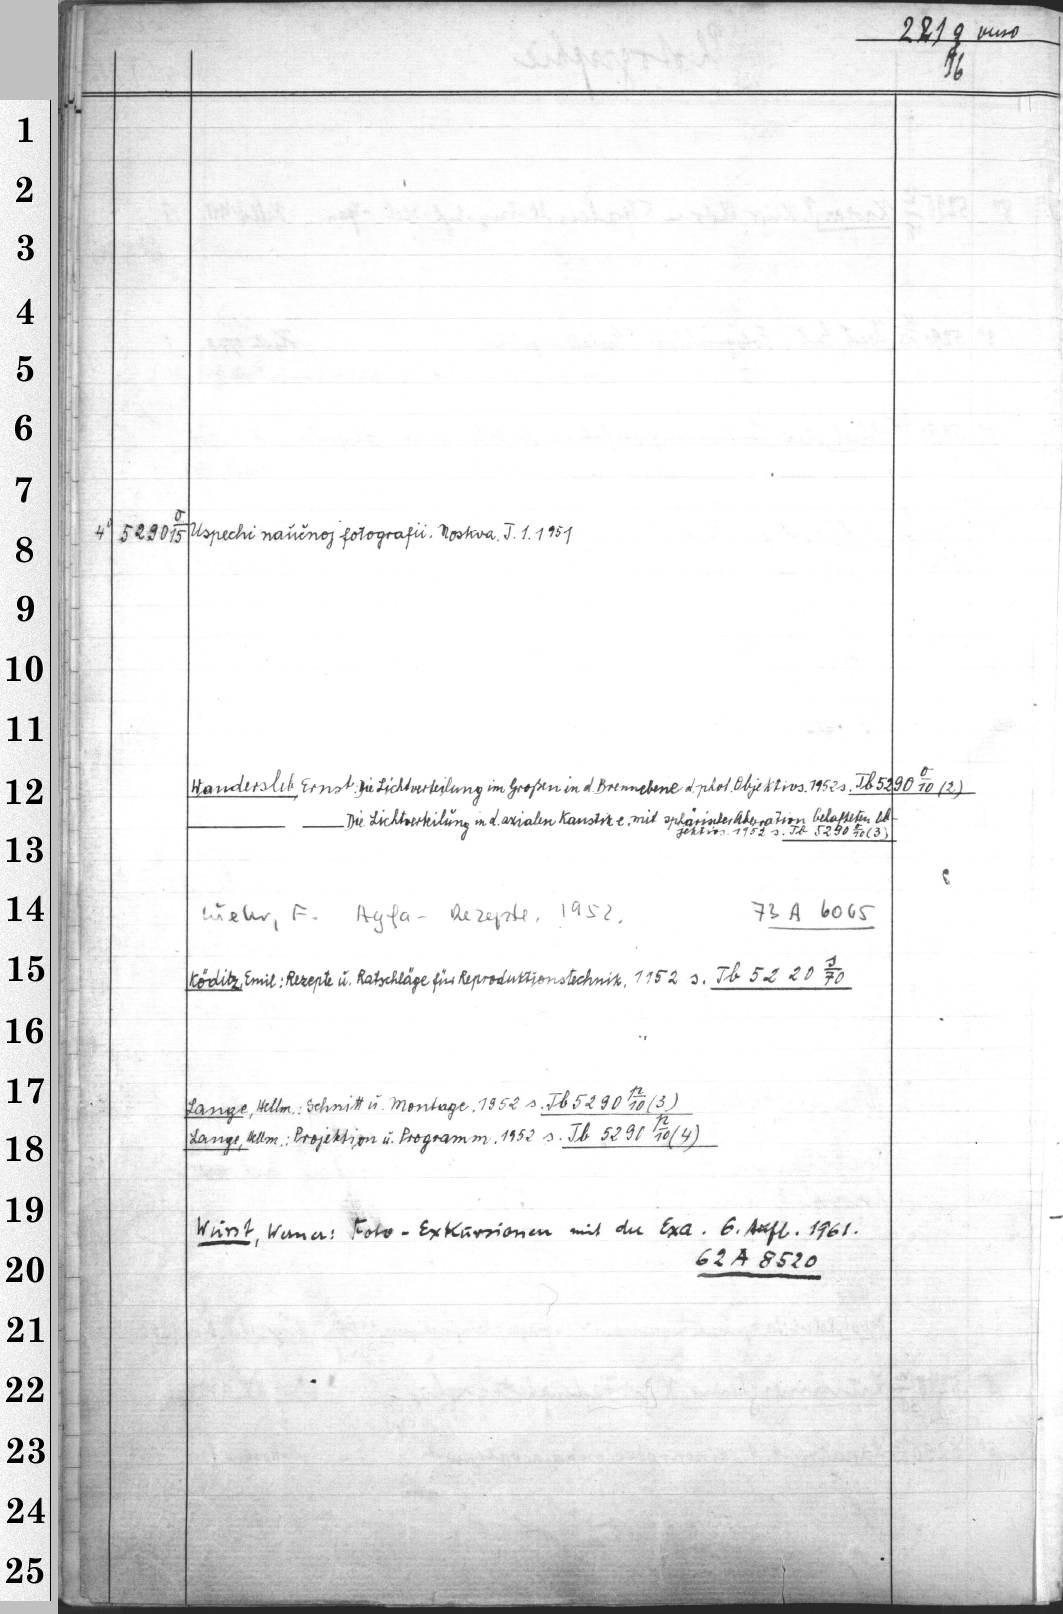 221 g verso
16
1
2
3
4
5
6
7
4° 5290 σ/15 Uspechi naučnoj fotografii. Moskva. T. 1. 1951
8
9
10
11
12 Wandersleb, Ernst: Die Lichtverteilung im Großen in d. Brennebene d. phot. Objektivs. 1952 s. Tb 5290 σ/10 (2)
Die Lichtverteilung in d. axialen Kaustik e. mit sphärischer Aberration behafteten Ob-
jektivs. 1952 s. Tb 5290 σ/10 (3)
13
14 F. Agfa-Rezepte. 1952. 73 A 6065
15 Köditz, Emil: Rezepte u. Ratschläge für Reproduktionstechnik. 1152 s. Tb 5220 s/70
16
17 Lange, Hellm.: Schnitt u. Montage. 1952 s. Tb 5290 n/10 (3)
18 Lange, Hellm.: Projektion u. Programm. 1952 s. Tb 5290 n/10 (4)
19 Wurst, Werner: Foto-Exkursionen mit der Exa. 6. Aufl. 1961.
20 62 A 8520
21
22
23
24
25